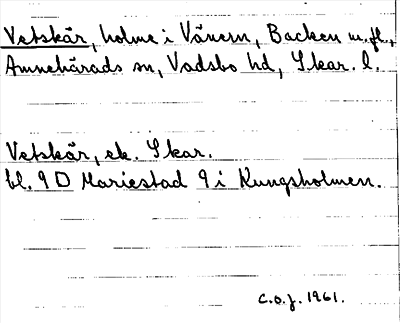 Vetskär, holme i Vänern, Backen m.fl.,
Amnehärads sn, Vadsbo hd, Skar. l.
Vetskär, ek. Skar.
bl. 9D Mariestad 9 i Kungsholmen.
C.O.J. 1961.